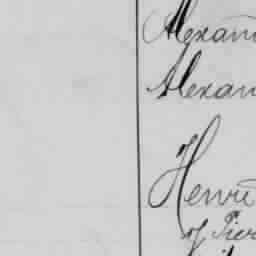 Alexan
Alexan
Henri
of Pier